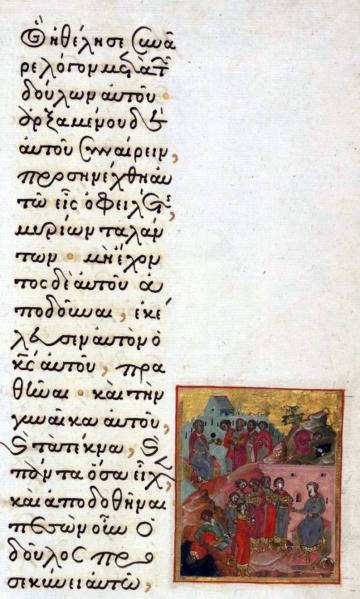 Ὃς ἠθέλησε συνᾶ
ρε λόγον μετὰ τῶν
δούλων αὐτοῦ·
ἀρξαμένου δὲ
αὐτοῦ συναίρειν,
προσηνέχθη αὐ
τῶ εἷς ὀφειλέτης
μυρίων ταλάν
των· μὴ ἔχον
τος δὲ αὐτοῦ ἀ
ποδοῦναι, ἐκέ
λευσεν αὐτὸν ὁ
κς αὐτοῦ, πρα
θῆναι· καὶ τὴν
γυναῖκα αὐτοῦ,
καὶ τὰ τέκνα, καὶ
πάντα ὅσα εἶχε,
καὶ ἀποδοθῆναι
πεσὼν οὖν ὁ
δοῦλος προ
σεκύνει αὐτῶ,